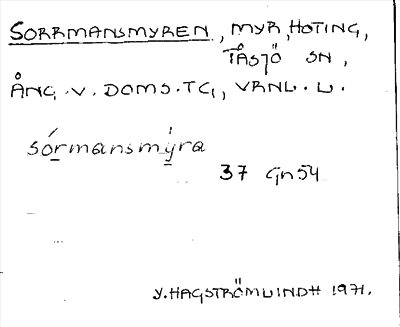 SORRMANSMYREN, MYR, HOTING,
TÅSJÖ SN,
ÅNG. V. DOMS. TG, VRNL. L.
sórmansmýra
37 Gn54
Y. HAGSTRÖMLINDH 1971.